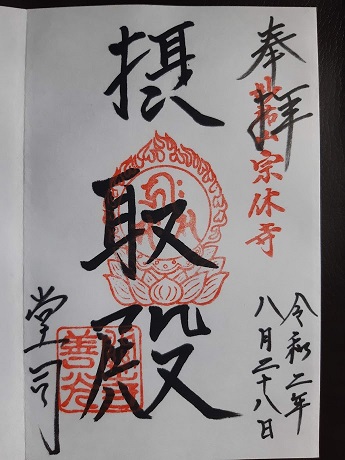 奉拝
宗休寺
令和二年
八月二十八日
摂取殿
善光
堂司